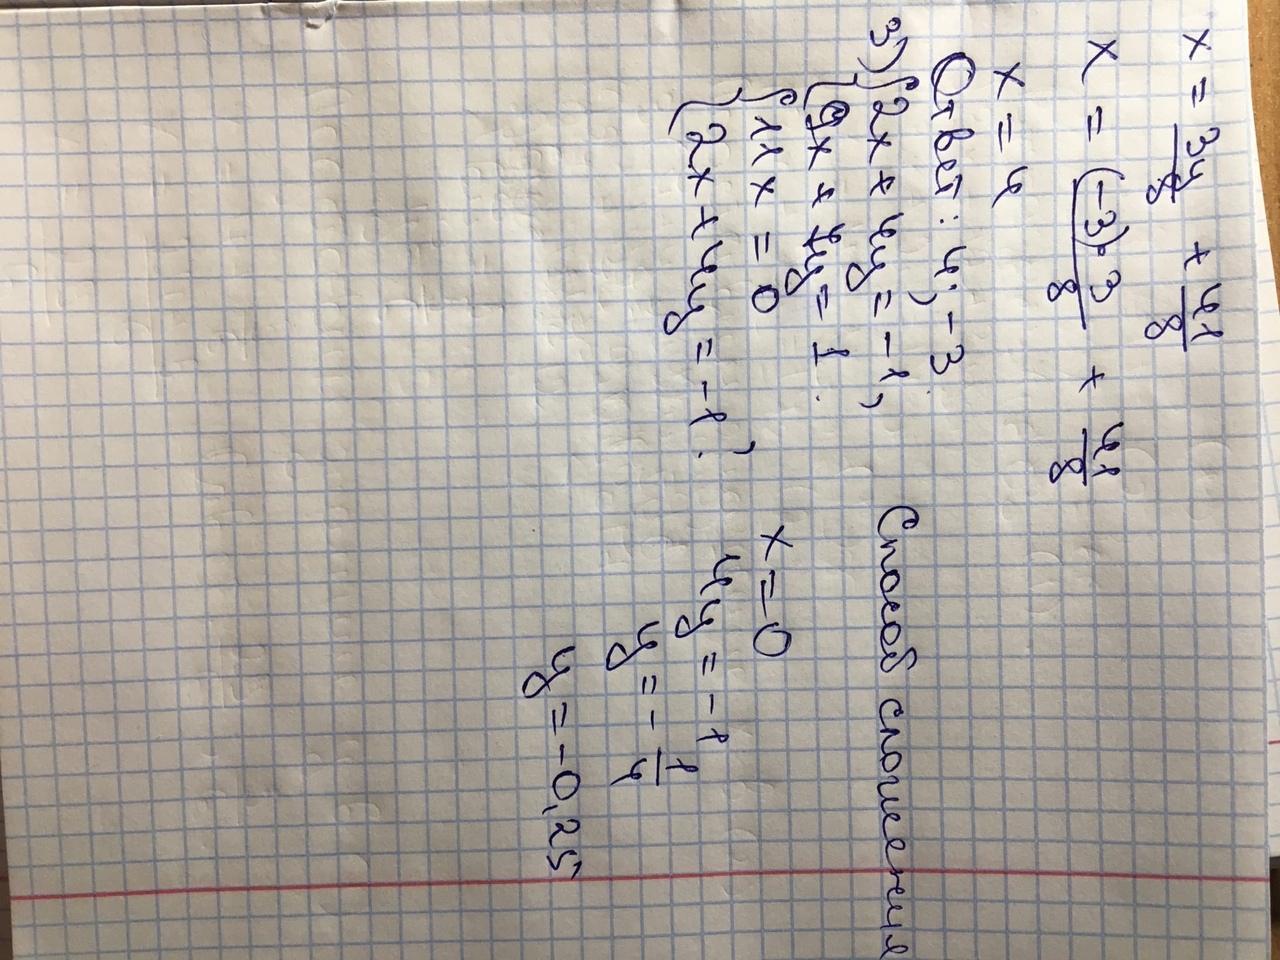 x = 3y/8 + 41/8
x = (-3)·3/8 + 41/8
x = 4
Ответ: 4; -3.
3) { 2x + 4y = -1,
{ 9x + 4y = 1. Способ сложения
{ 11x = 0
{ 2x + 4y = -1.
x = 0
4y = -1
y = - 1/4
y = -0,25